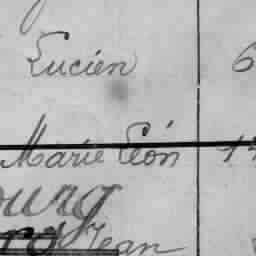 Lucien 6
Marie Léon 17
ourg
Jean